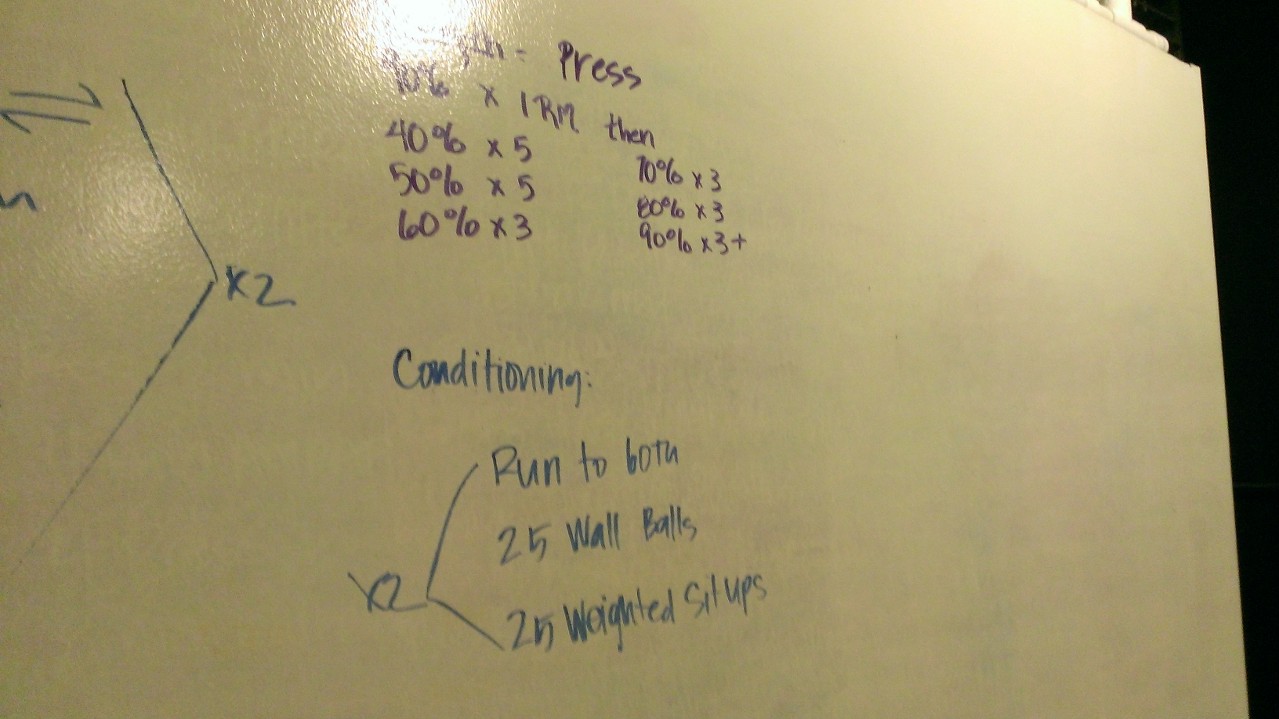 Press
90% x 1RM then
40% x 5
50% x 5
60% x 3
70% x 3
80% x 3
90% x 3+
x2
Conditioning:
Run to 60th
25 Wall Balls
x2
25 Weighted Sit ups